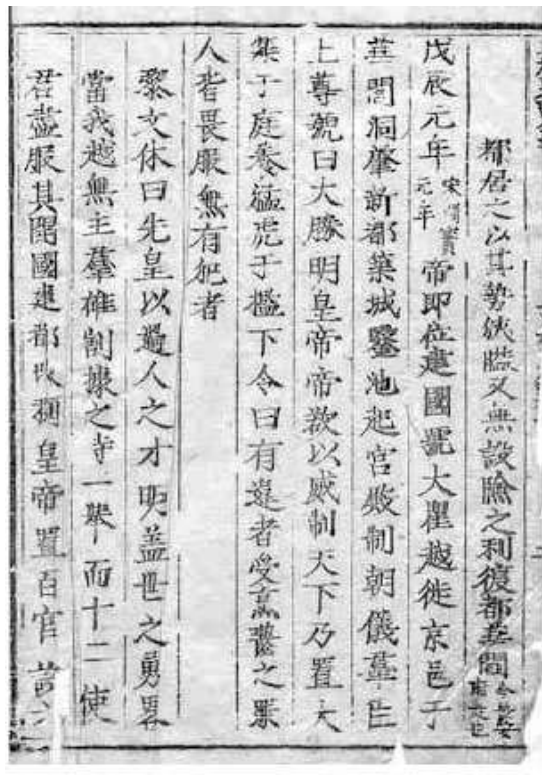 都居之以其勢狹隘又無設險之利復都華閭今嘉
戊辰元年宋開寶元年帝即位建國號大瞿越徙京邑于
華閭洞肇新都築城鑿池起宮殿制朝儀羣臣
上尊號曰大勝明皇帝帝欲以威制天下乃置大
鼎于庭養猛虎于檻下令曰有違者受烹齧之罪
人皆畏服無有犯者
黎文休曰先皇以過人之才明盖世之勇畧
當我越無主羣雄割據之時一舉而十二使
君盡服其開國建都改稱皇帝置百官